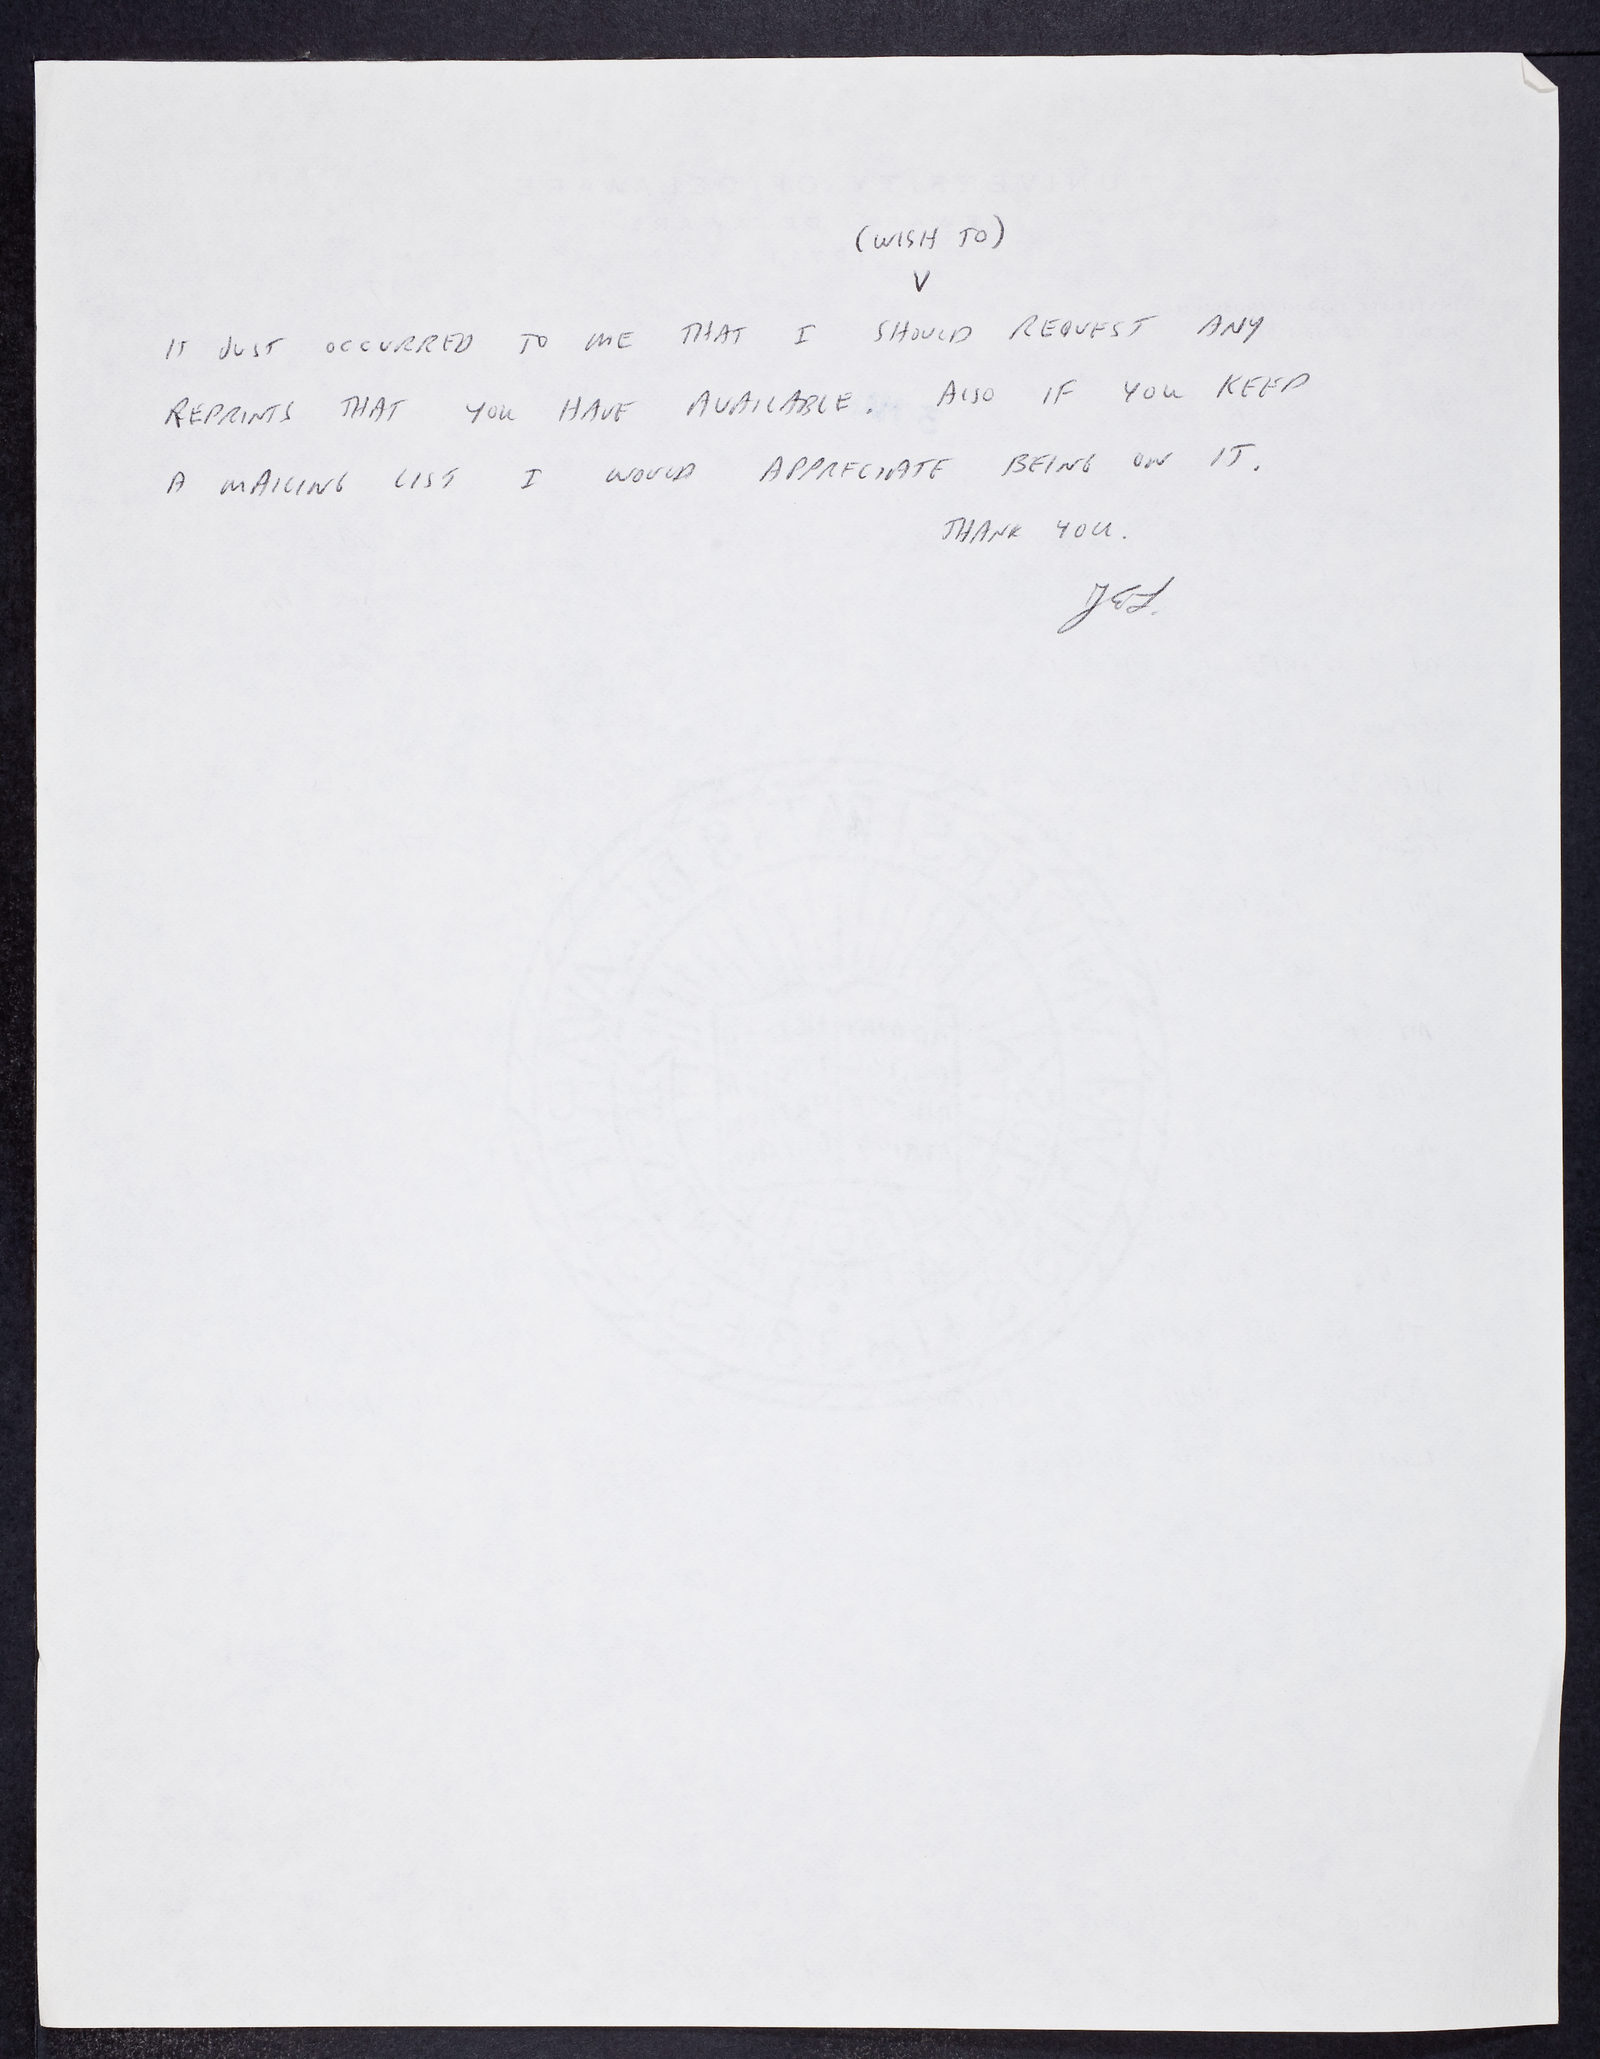 (WISH TO)
V
IT JUST OCCURRED TO ME THAT I SHOULD REQUEST ANY
REPRINTS THAT YOU HAVE AVAILABLE. ALSO IF YOU KEEP
A MAILING LIST I WOULD APPRECIATE BEING ON IT.
THANK YOU.
JEL.